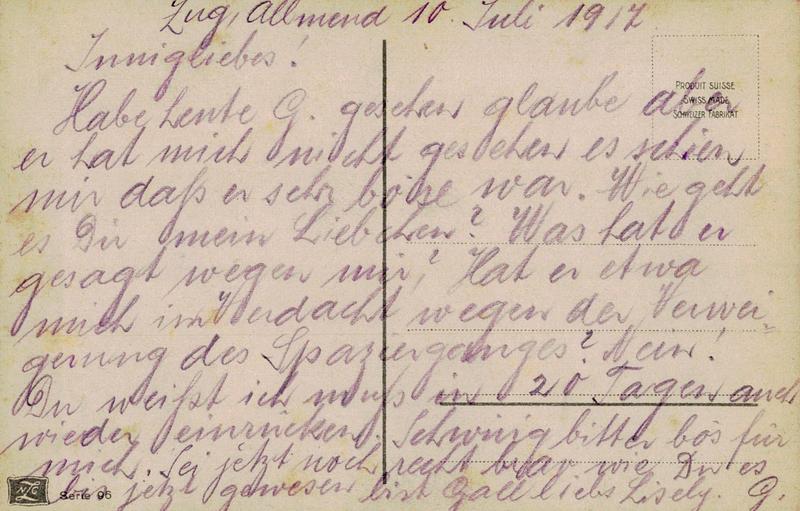 Zug, Allmend 10. Juli 1917
Innigliebes!
Habe heute G. gesehen glaube aber
er hat mich nicht gesehen es schien
mir daß er sehr böse war. Wie geht
es Dir mein Liebchen? Was hat er
gesagt wegen mir? Hat er etwa
mich im Verdacht wegen der Verwei-
gerung des Spazierganges? Nein!
Du weißt ich muß in 20 Tagen auch
wieder einrücken. bitter bös für
mich. Sei jetzt noch recht brav wie Du es
bis jetzt gewesen bist liebs Lisely. G.
PRODUIT SUISSE
SWISS MADE
SCHWEIZER FABRIKAT
Serie 96